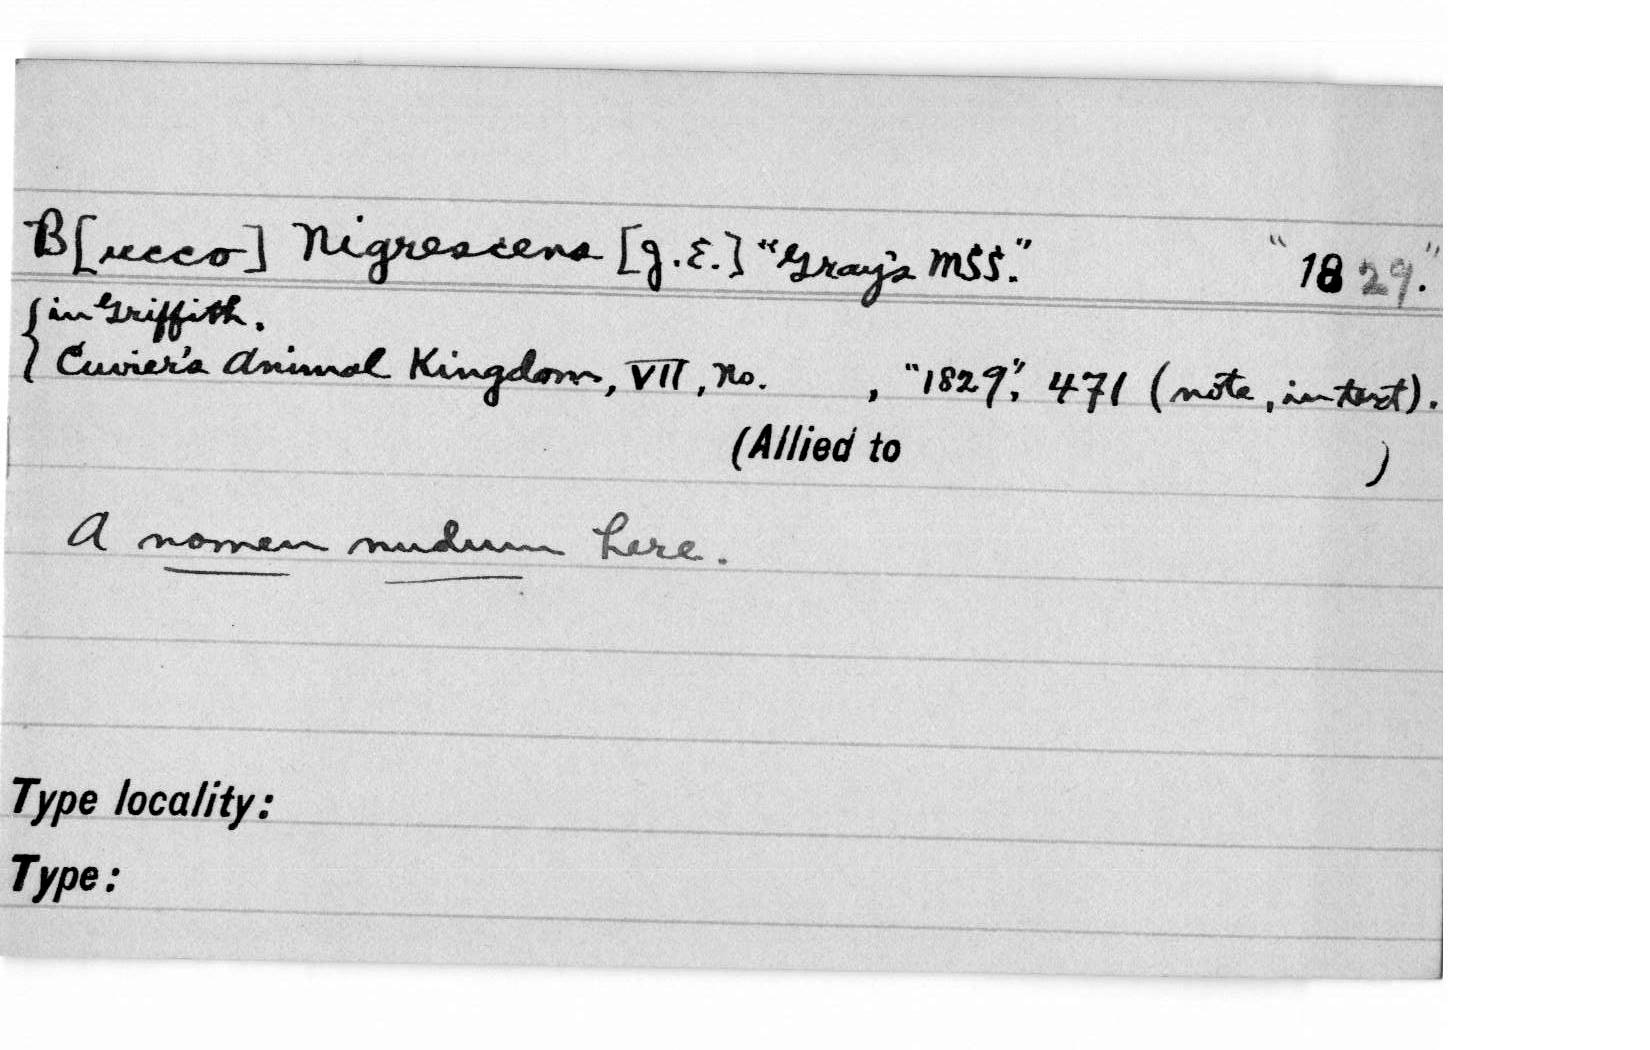 B[ucco] Nigrescens [J.E.] "Gray's MSS." "1829."
{in Griffith.
Cuvier's Animal Kingdom, VII, No. , "1829", 471 (note, in text).
(Allied to )
A nomen nudum here.
Type locality:
Type: